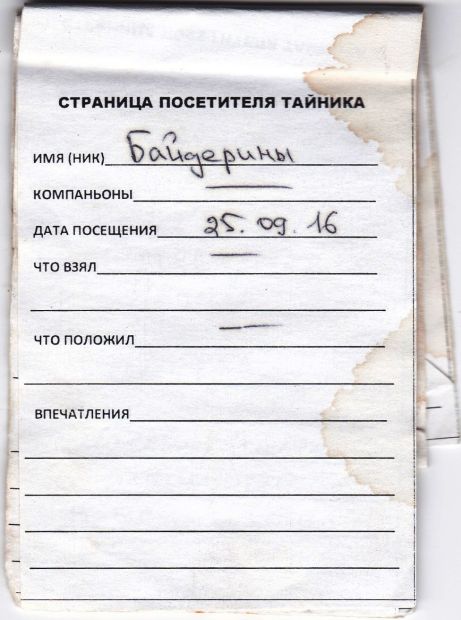 СТРАНИЦА ПОСЕТИТЕЛЯ ТАЙНИКА
ИМЯ (НИК) Байдерины
КОМПАНЬОНЫ —
ДАТА ПОСЕЩЕНИЯ 25. 09. 16
ЧТО ВЗЯЛ —
ЧТО ПОЛОЖИЛ —
ВПЕЧАТЛЕНИЯ